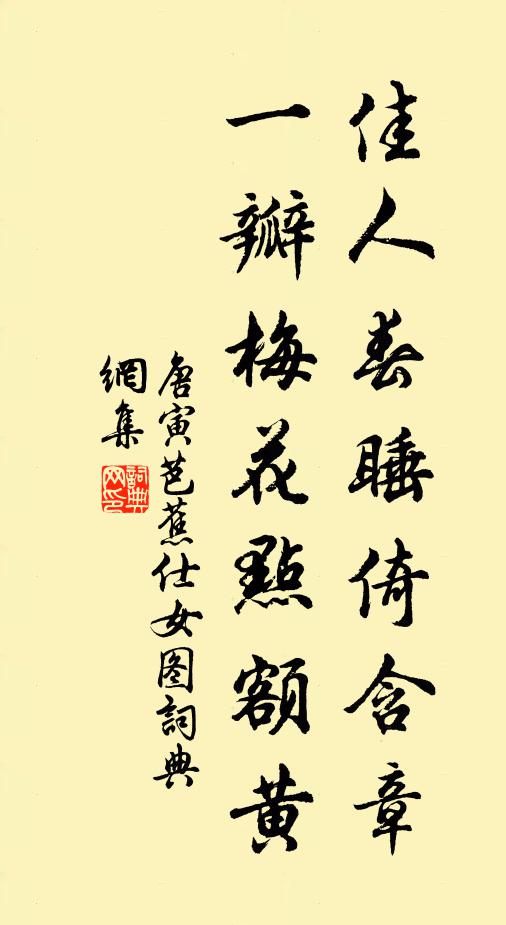 佳人春睡倚含章
一瓣梅花點額黃
唐寅芭蕉仕女图詞典
網集
詞典
网印